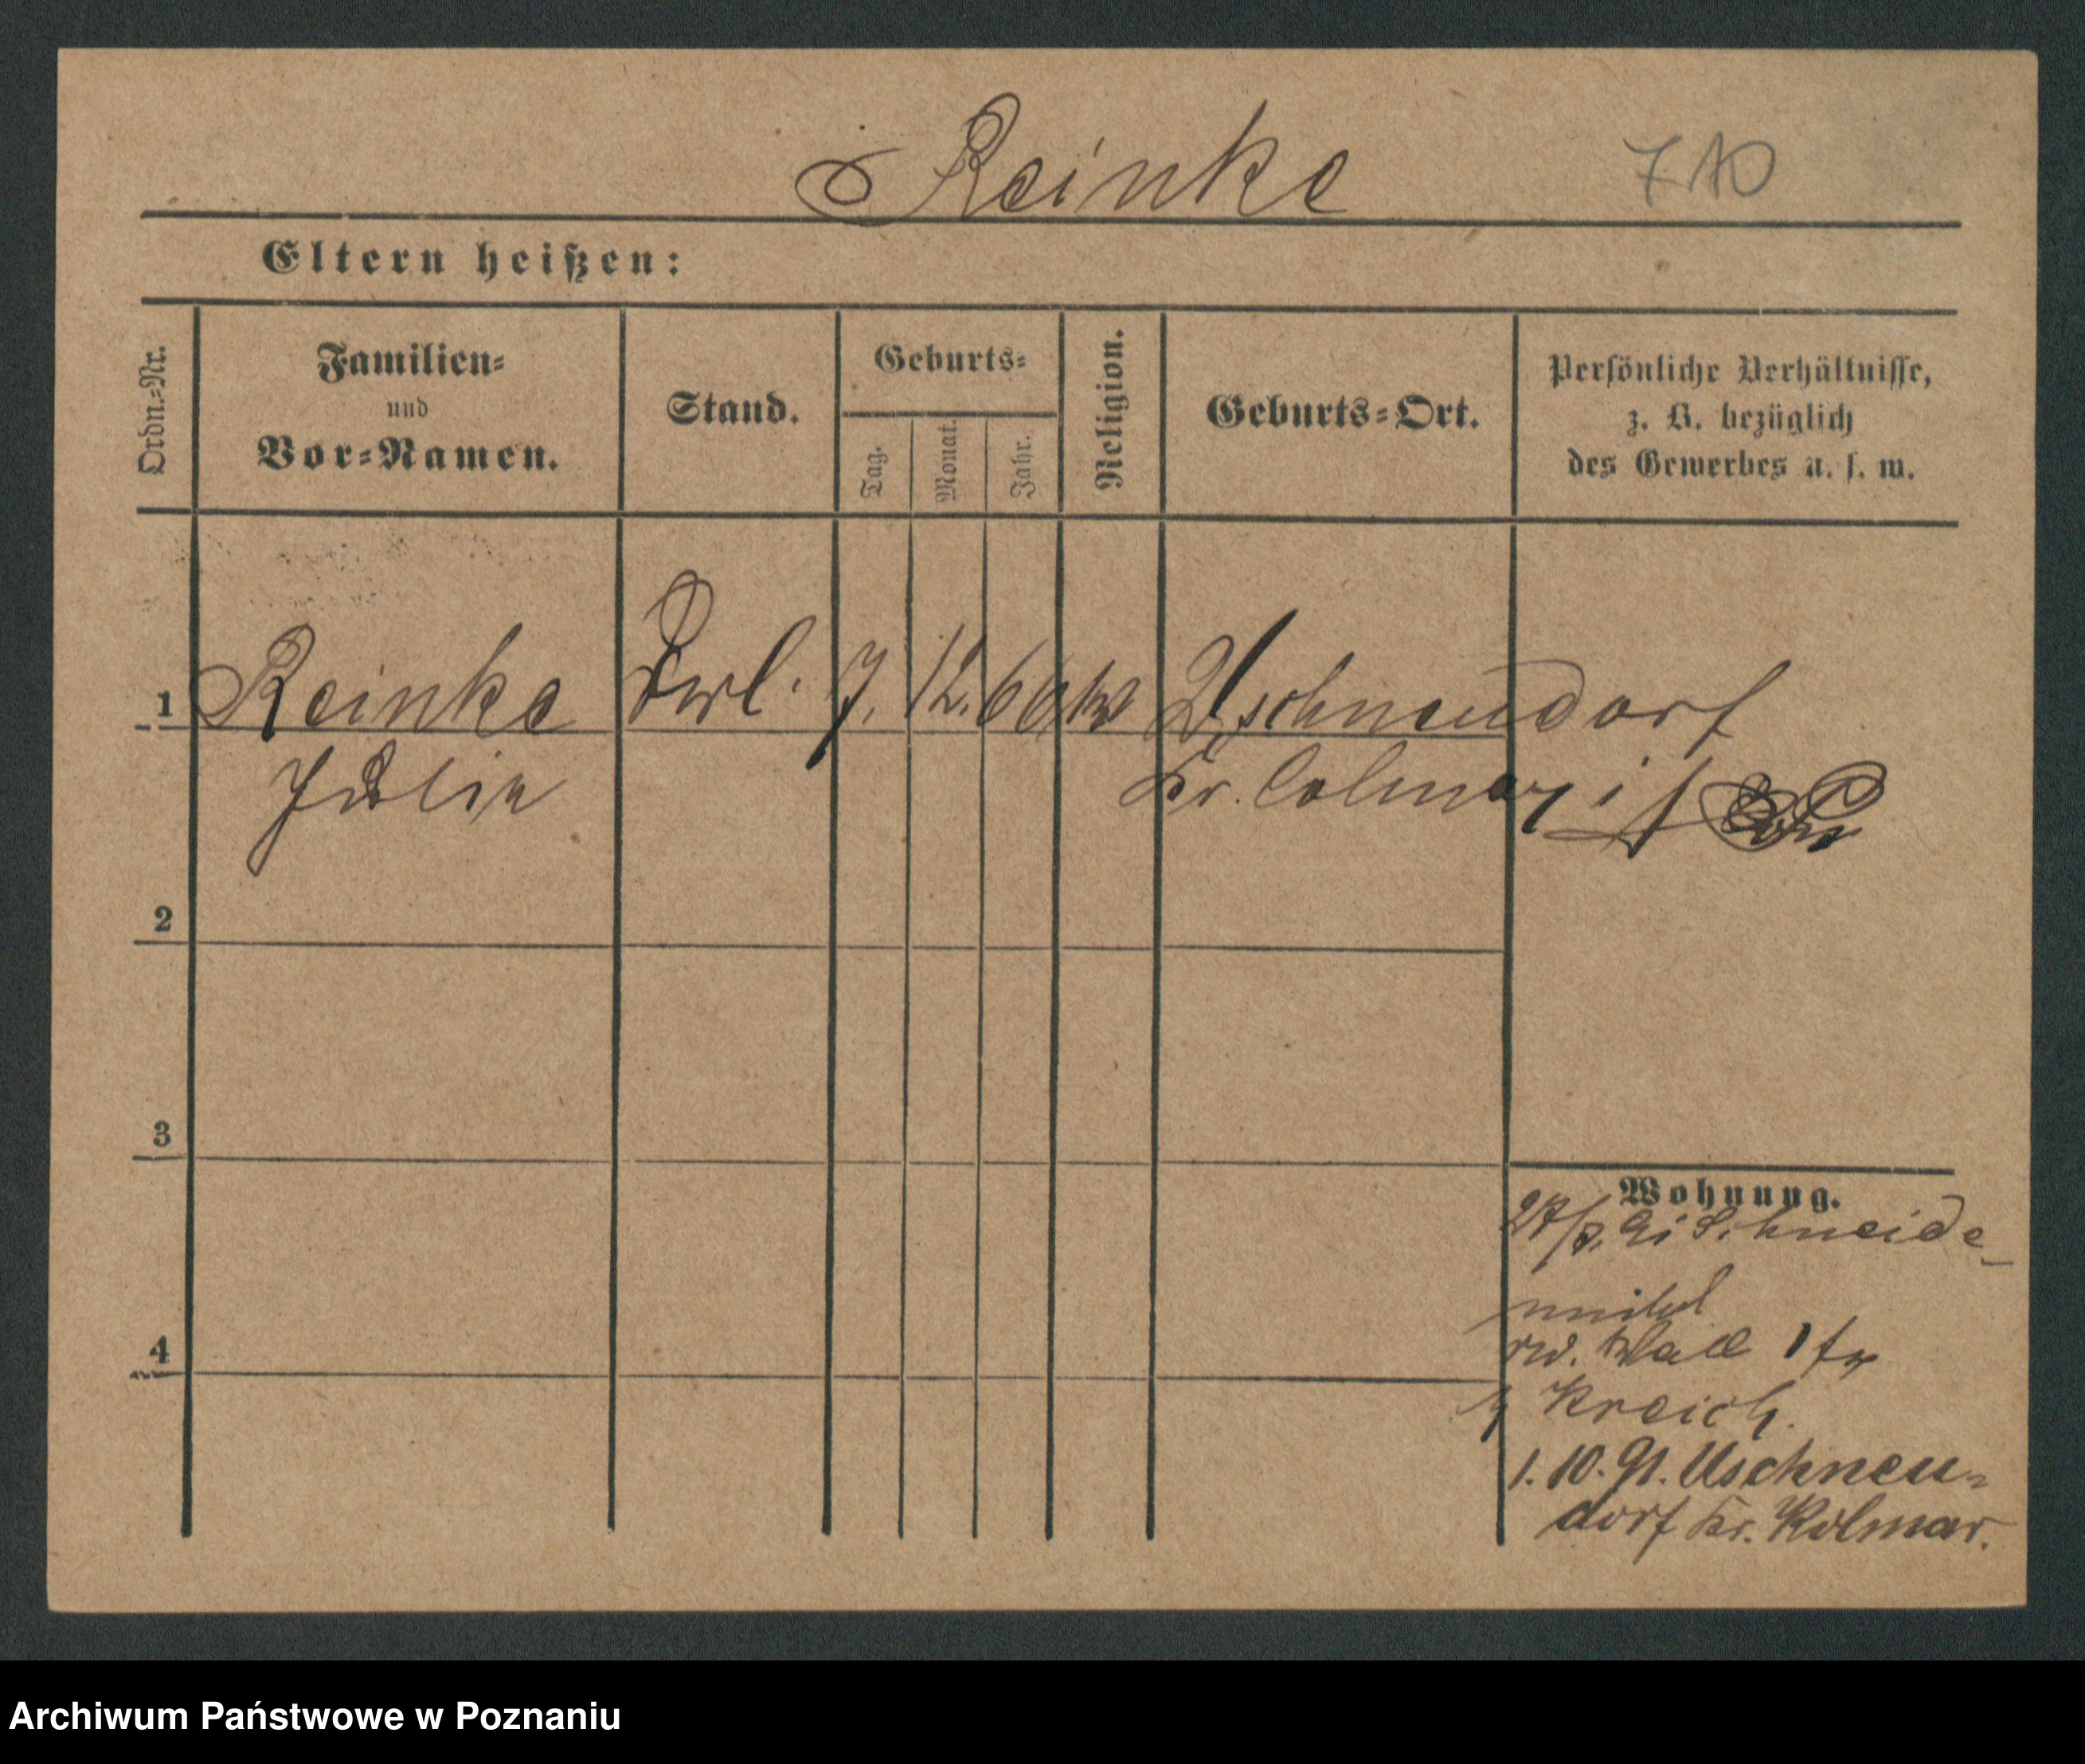 Reinke 710
Eltern heißen:
Ordn.-Nr.
Familien-
und
Vor-Namen.
Stand.
Geburts-
Tag.
Monat.
Jahr.
Religion.
Geburts-Ort.
Persönliche Verhältnisse,
z. B. bezüglich
des Gewerbes u. s. w.
1 Reinke 7. 12. 66 Uschneudorf
Julia Kr. Colmar i
2
3
4
Wohnung.
Schneide-
mühl
Wall 1
Kreich.
1. 10. 91. Uschneu-
dorf Kr. Kolmar.
Archiwum Państwowe w Poznaniu